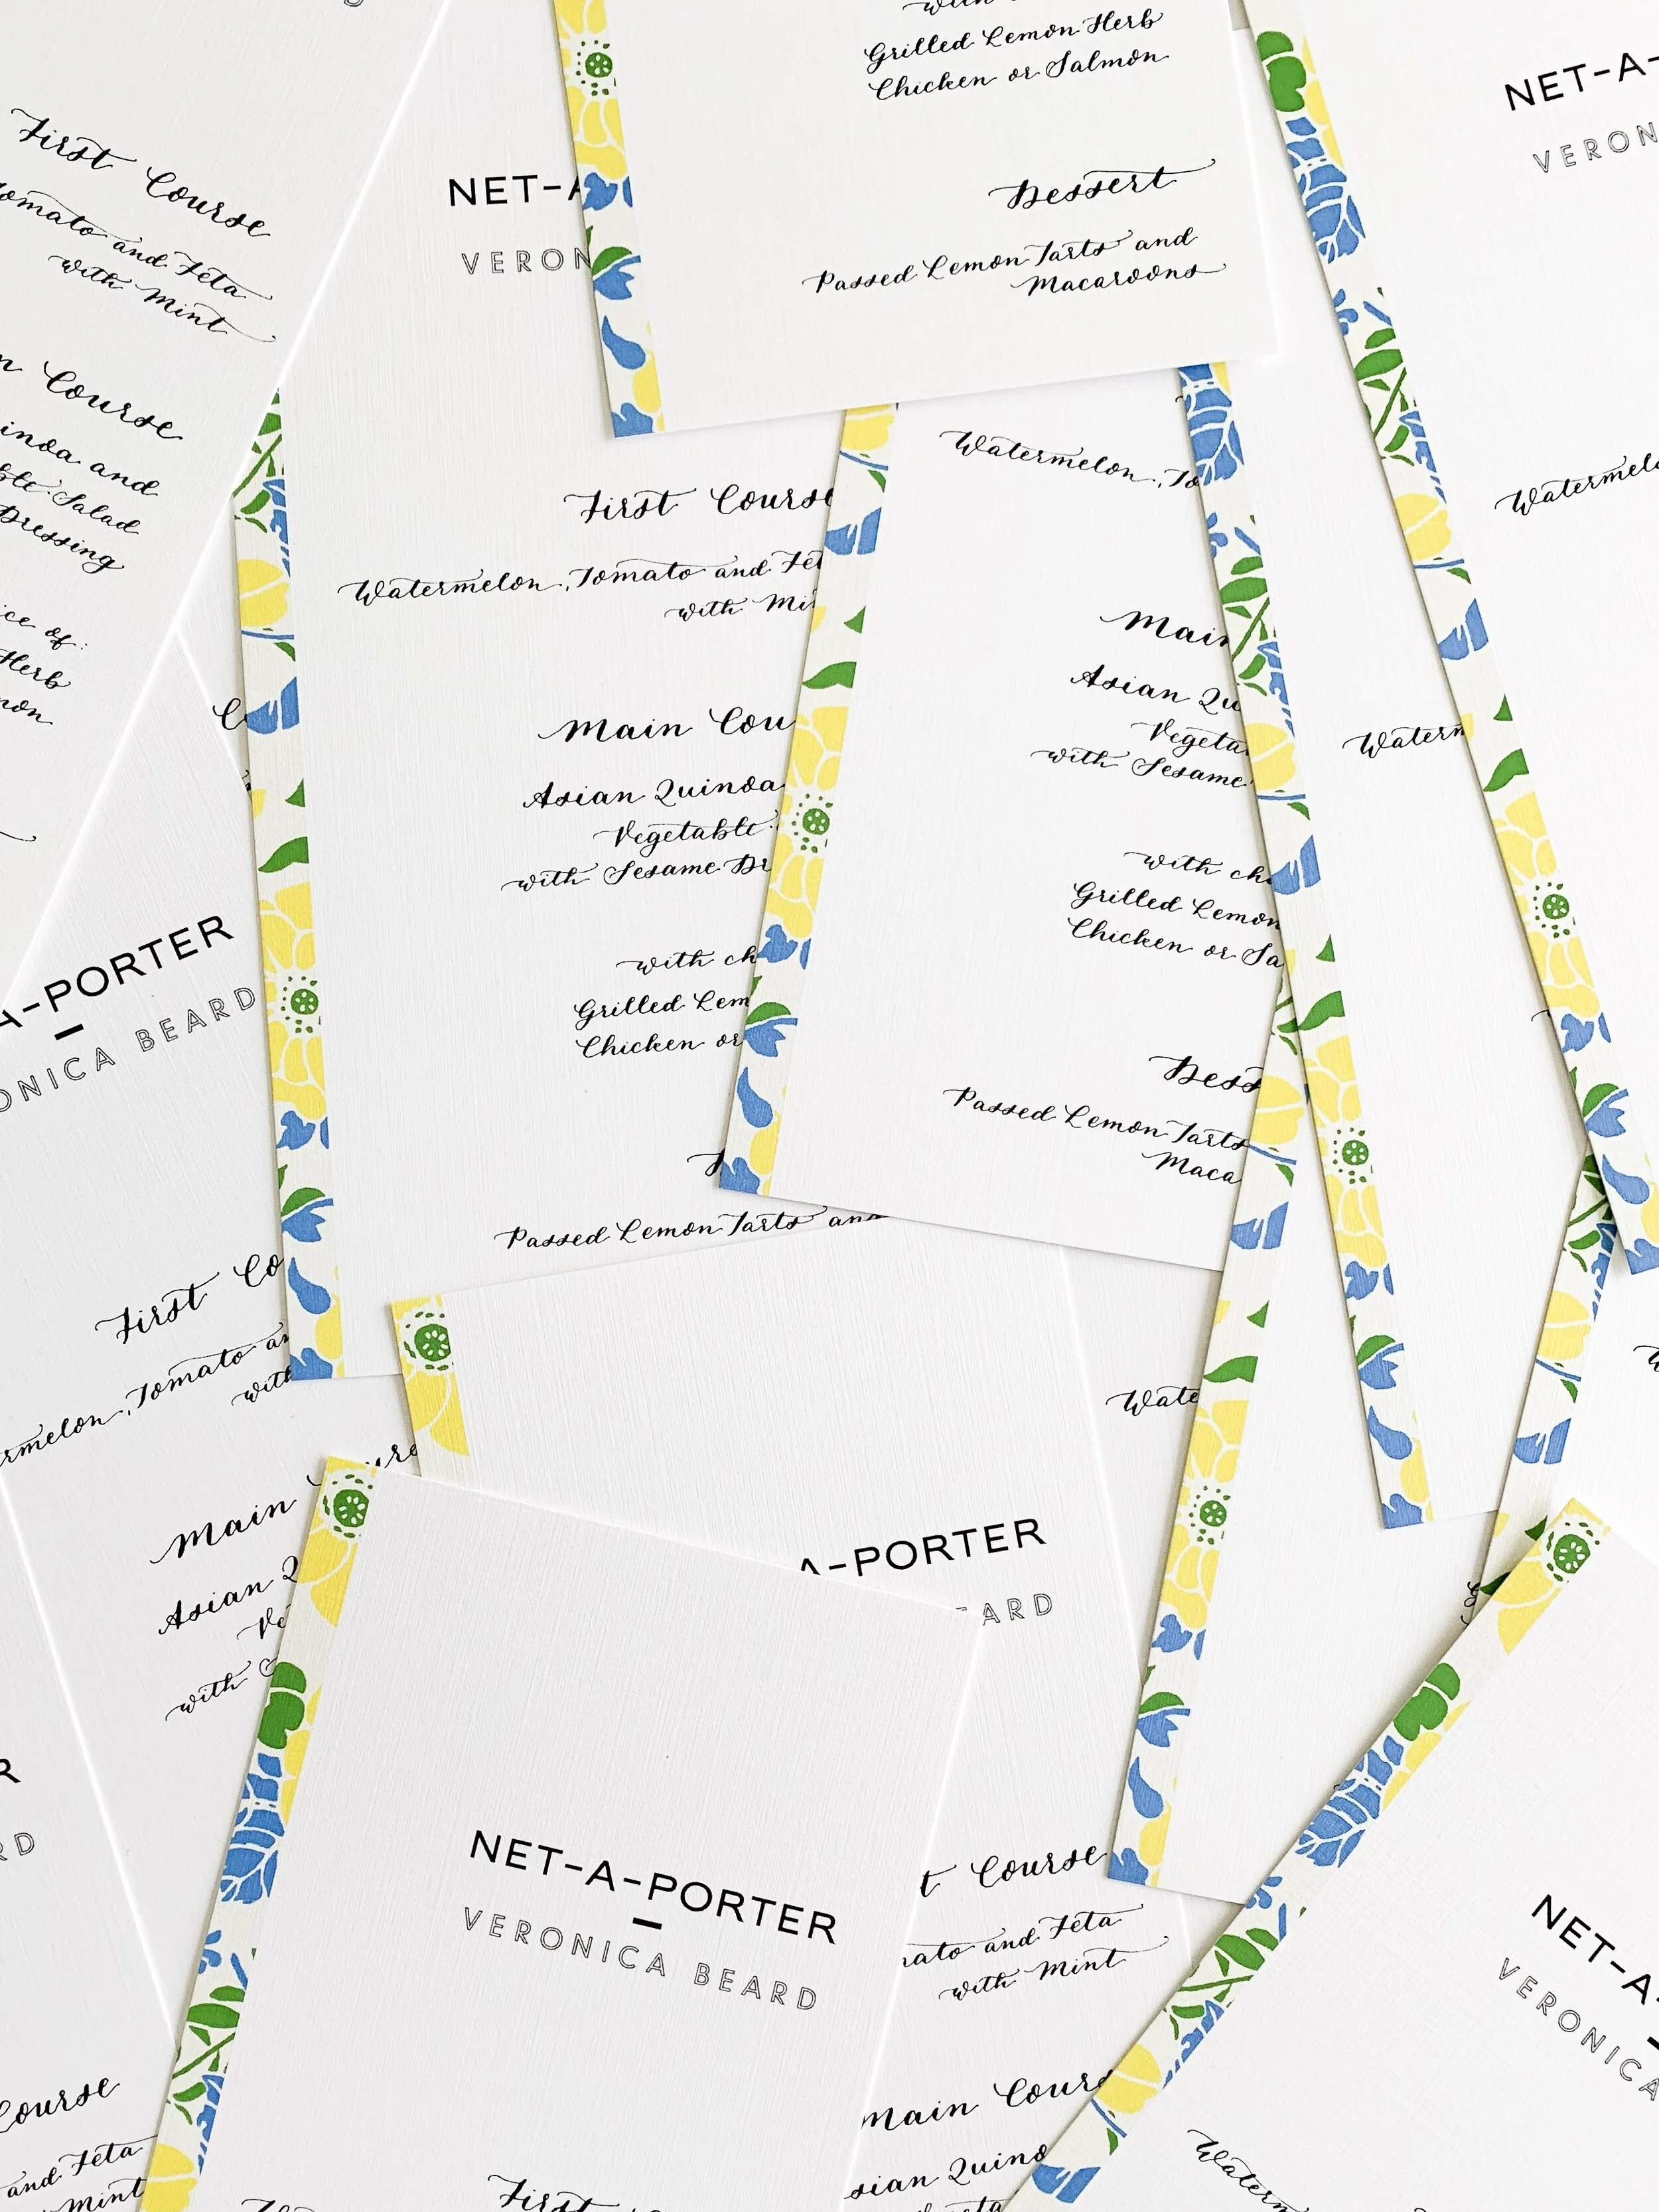 with
Grilled Lemon Herb
Chicken or Salmon
Dessert
Passed Lemon Tarts and
Macaroons
NET-A-
VERON
First Course
Tomato and Feta
with Mint
Course
Quinoa and
Salad
Dressing
of:
Herb
NET-A
VERON
First Course
Watermelon, Tomato and Fet
with Mi
Main Cou
Asian Quinoa
Vegetable
with Sesame Dr
with ch
Grilled Lem
Chicken or
Passed Lemon Tarts and
Watermelon, To
Main
Asian Qu
Vegeta
with Sesame
with ch
Grilled Lemon
Chicken or Sa
Dess
Passed Lemon Tarts
Maca
Watermel
Watern
A-PORTER
ONICA BEARD
First Co
rmelon, Tomato an
with
Main
Asian Q
Ve
with
A-PORTER
ARD
Wate
NET-A-PORTER
VERONICA BEARD
First
t Course
mato and Feta
with Mint
Main Cours
sian Quino
NET-A-
VERONICA
Waterm
R
RD
Course
and Feta
Mint